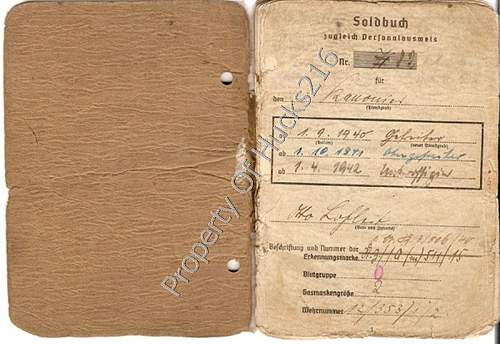 Soldbuch
zugleich Personalausweis
Nr. 782
für
den Kanonier
(Dienstgrad)
1. 9. 1940 Gefreiter
(Datum) (neuer Dienstgrad)
ab 1. 10. 1941 Obergefreiter
ab 1. 4. 1942 Unteroffizier
(Vor- und Zuname)
Beschriftung und Nummer der
Erkennungsmarke
Blutgruppe 0
Gasmaskengröße 2
Wehrnummer
Property Of Hucks216